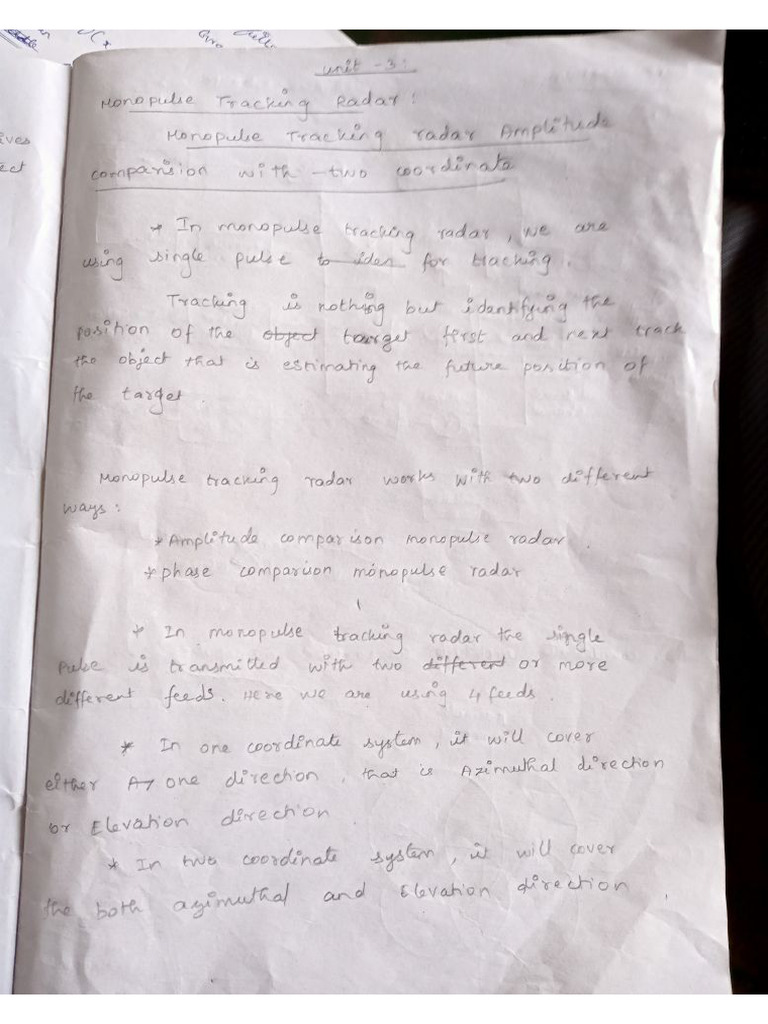 unit - 3:
Monopulse Tracking Radar:
Monopulse Tracking radar Amplitude
comparision with - two coordinate
* In monopulse tracking radar, we are
using single pulse to iden for tracking.
Tracking is nothing but identifying the
position of the object target first and next track
the object that is estimating the future position of
the target.
Monopulse tracking radar works with two different
ways:
* Amplitude comparison monopulse radar.
* phase comparison monopulse radar
* In monopulse tracking radar the single
pulse is transmitted with two different or more
different feeds. Here we are using 4 feeds.
* In one coordinate system, it will cover
either Az one direction, that is Azimuthal direction
or Elevation direction.
* In two coordinate system, it will cover
the both azimuthal and Elevation direction.